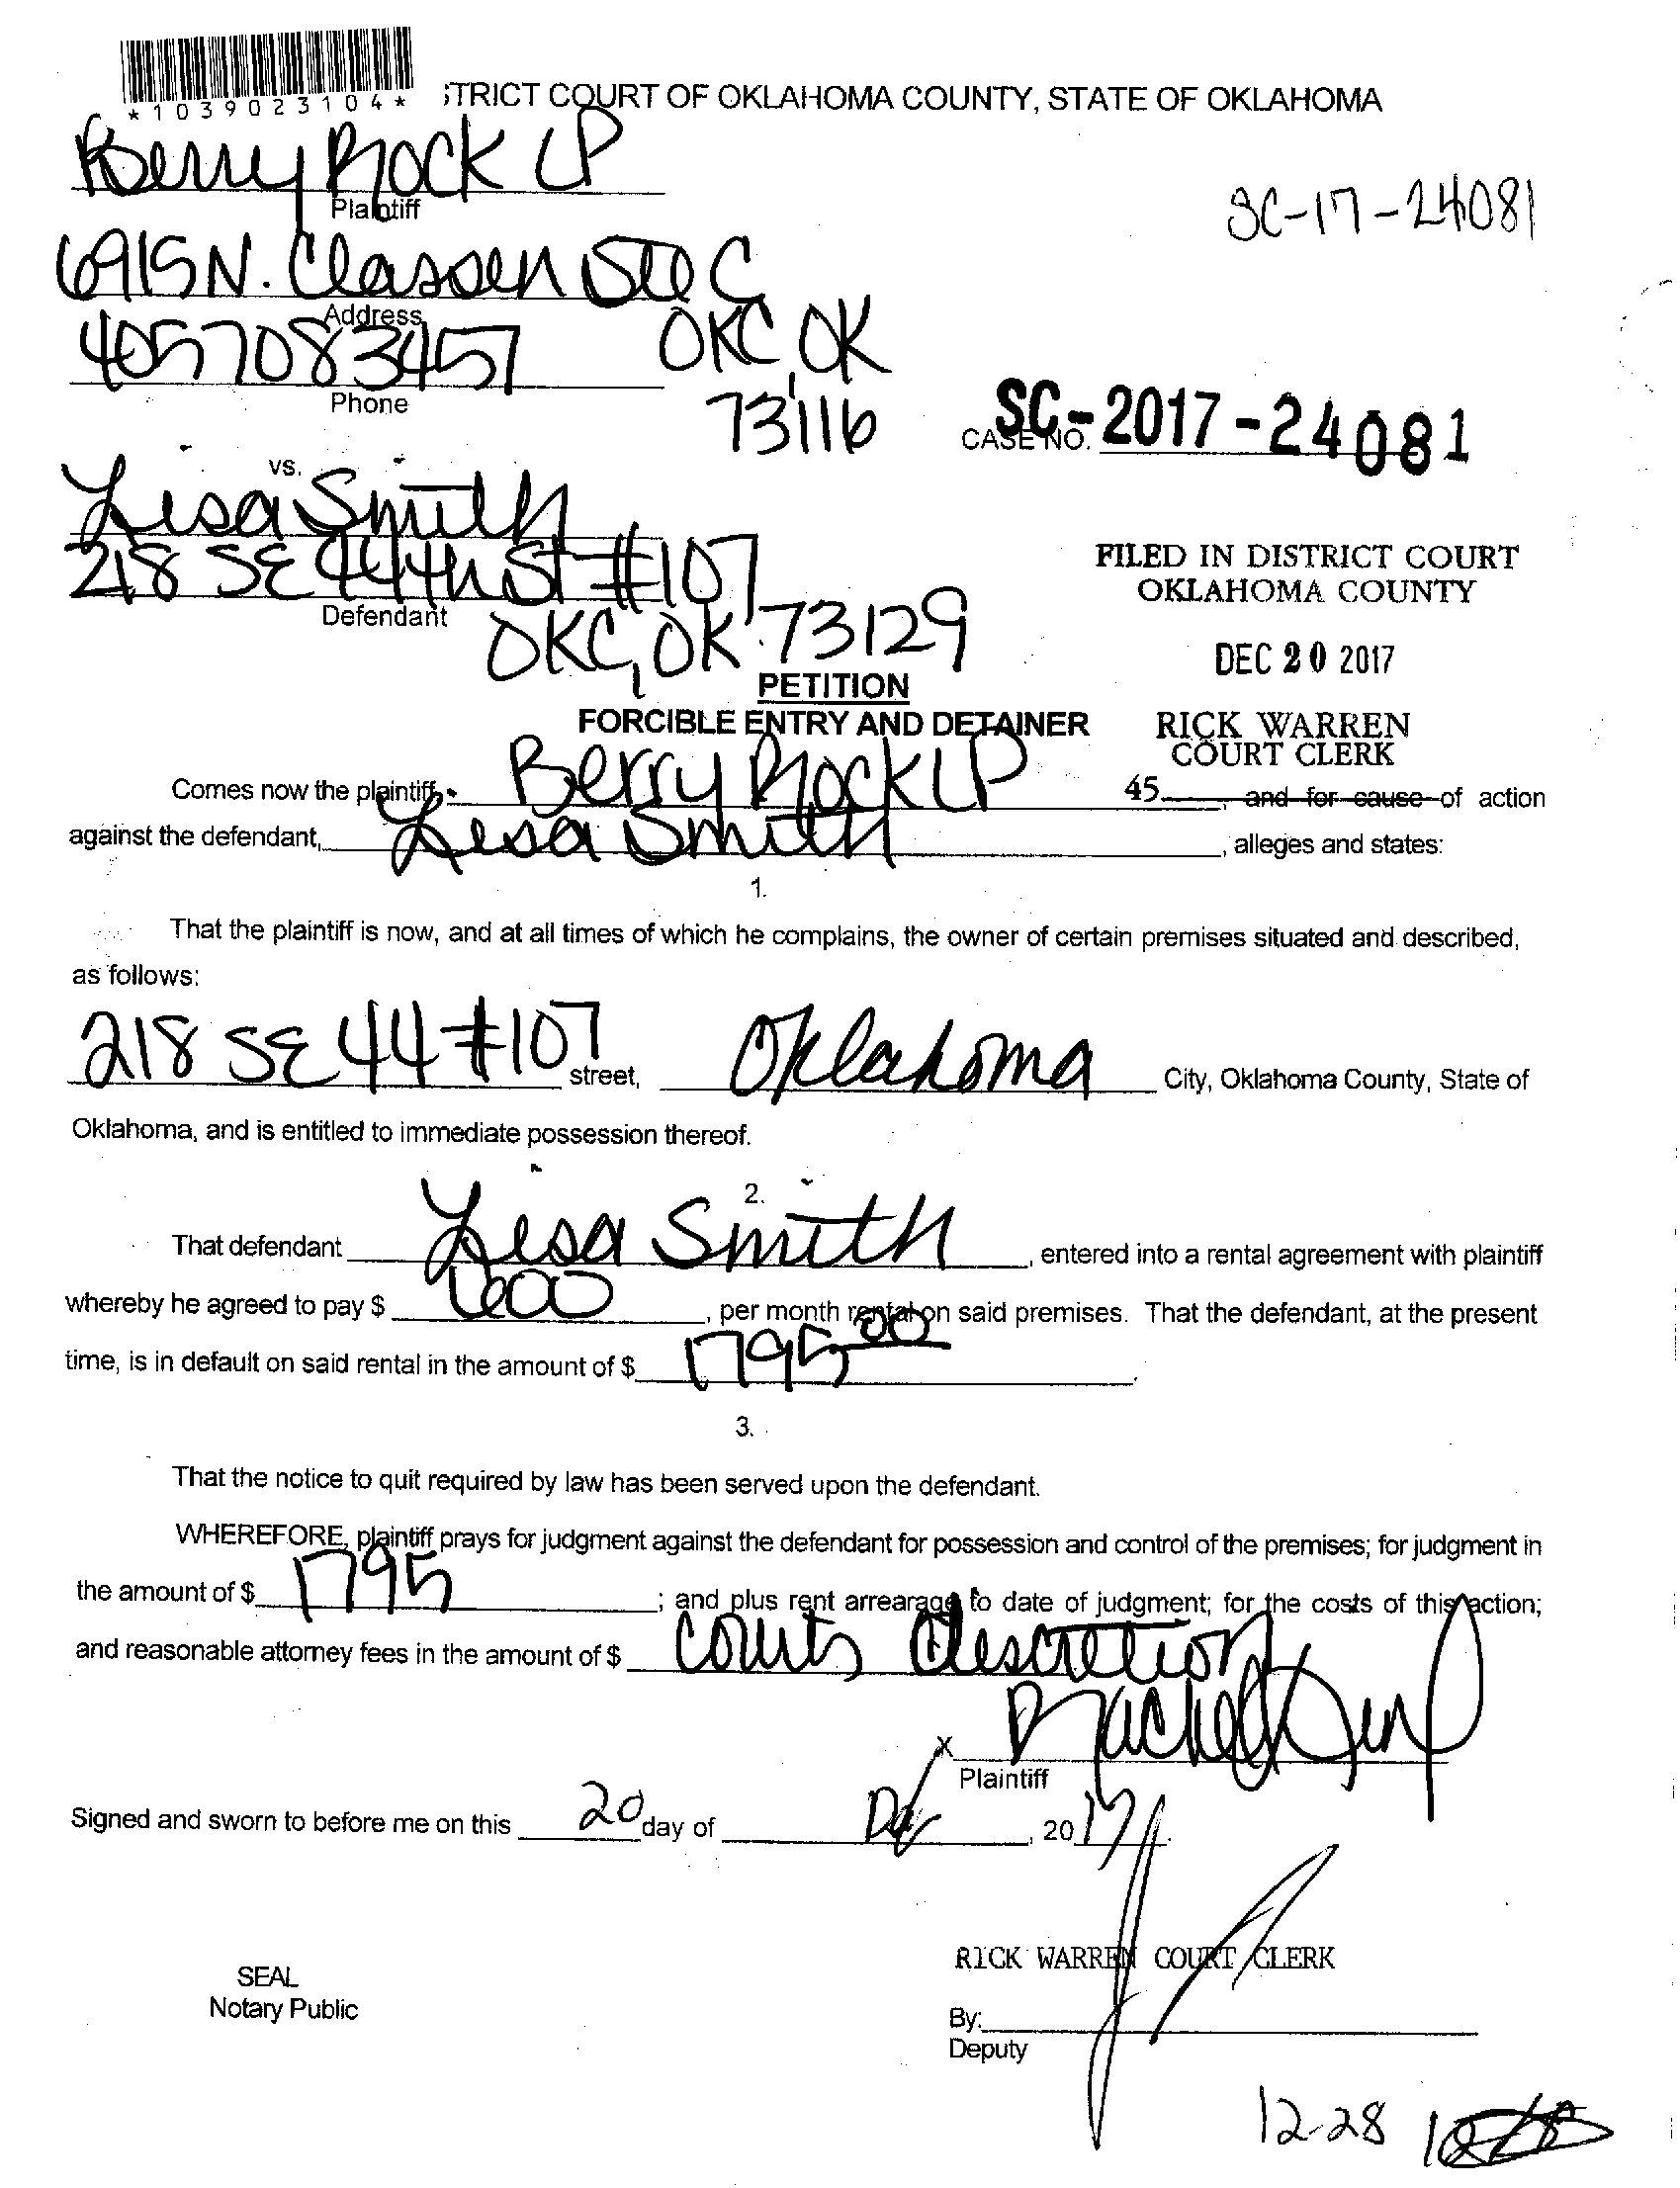 *1039023104*
STRICT COURT OF OKLAHOMA COUNTY, STATE OF OKLAHOMA
Berry Rock LP
Plaintiff
SC-17-24081
6915 N. Classen Ste C
Address
OKC, OK
4057083457
Phone
73116
CASE NO. SC-2017-24081
vs.
Lisa Smith
218 SE 44th St #107
Defendant
OKC, OK 73129
FILED IN DISTRICT COURT
OKLAHOMA COUNTY
DEC 20 2017
RICK WARREN
COURT CLERK
45
PETITION
FORCIBLE ENTRY AND DETAINER
Comes now the plaintiff, Berry Rock LP, and for cause of action
against the defendant, Lisa Smith, alleges and states:
1.
That the plaintiff is now, and at all times of which he complains, the owner of certain premises situated and described,
as follows:
218 SE 44 #107 street, Oklahoma City, Oklahoma County, State of
Oklahoma, and is entitled to immediate possession thereof.
2.
That defendant Lisa Smith, entered into a rental agreement with plaintiff
whereby he agreed to pay $ 600, per month rental on said premises. That the defendant, at the present
time, is in default on said rental in the amount of $ 1795 00.
3.
That the notice to quit required by law has been served upon the defendant.
WHEREFORE, plaintiff prays for judgment against the defendant for possession and control of the premises; for judgment in
the amount of $ 1795; and plus rent arrearage to date of judgment; for the costs of this action;
and reasonable attorney fees in the amount of $ courts discretion
X Rachel
Plaintiff
Signed and sworn to before me on this 20 day of Dec, 2017.
RICK WARREN COURT CLERK
SEAL
Notary Public
By:
Deputy
12-28